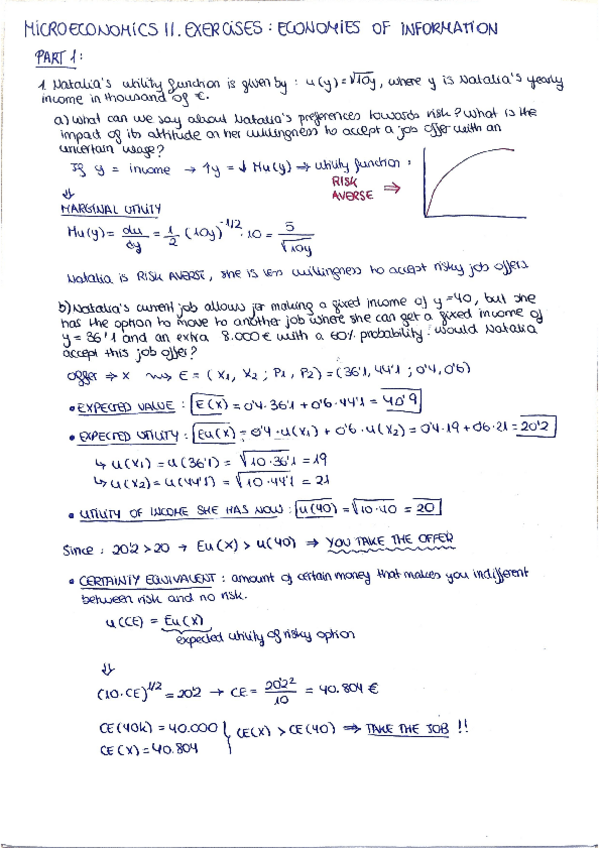 MICROECONOMICS II. EXERCISES: ECONOMIES OF INFORMATION
PART 1:
1. Natalia's utility function is given by: u(y)=√10y, where y is Natalia's yearly
income in thousand of €.
a) what can we say about Natalia's preferences towards risk? What is the
impact of its attitude on her willingness to accept a job offer with an
uncertain wage?
If y = income → ↑y = ↓ Mu(y) ⇒ utility function:
RISK
AVERSE ⇒
⇓
MARGINAL UTILITY
Mu(y) = du/dy = 1/2 (10y)^-1/2 · 10 = 5/√10y
Natalia is RISK AVERSE, she is less willingness to accept risky job offers
b) Natalia's current job allows for making a fixed income of y=40, but she
has the option to move to another job where she can get a fixed income of
y = 36'1 and an extra 8.000€ with a 60% probability. Would Natalia
accept this job offer?
offer ⇒ x ⇝ E = (X1, X2; P1, P2) = (36'1, 44'1; 0'4, 0'6)
• EXPECTED VALUE: E(X) = 0'4·36'1 + 0'6·44'1 = 40'9
• EXPECTED UTILITY: Eu(X) = 0'4·u(X1) + 0'6·u(X2) = 0'4·19 + 0'6·21 = 20'2
↳ u(X1) = u(36'1) = √10·36'1 = 19
↳ u(X2) = u(44'1) = √10·44'1 = 21
• UTILITY OF INCOME SHE HAS NOW: u(40) = √10·40 = 20
Since: 20'2 > 20 → Eu(X) > u(40) ⇒ YOU TAKE THE OFFER
• CERTAINTY EQUIVALENT: amount of certain money that makes you indifferent
between risk and no risk.
u(CE) = Eu(X)
expected utility of risky option
⇓
(10·CE)^1/2 = 20'2 → CE = 20'2²/10 = 40.804 €
CE(40k) = 40.000
CE(X) = 40.804
CE(X) > CE(40) ⇒ TAKE THE JOB !!